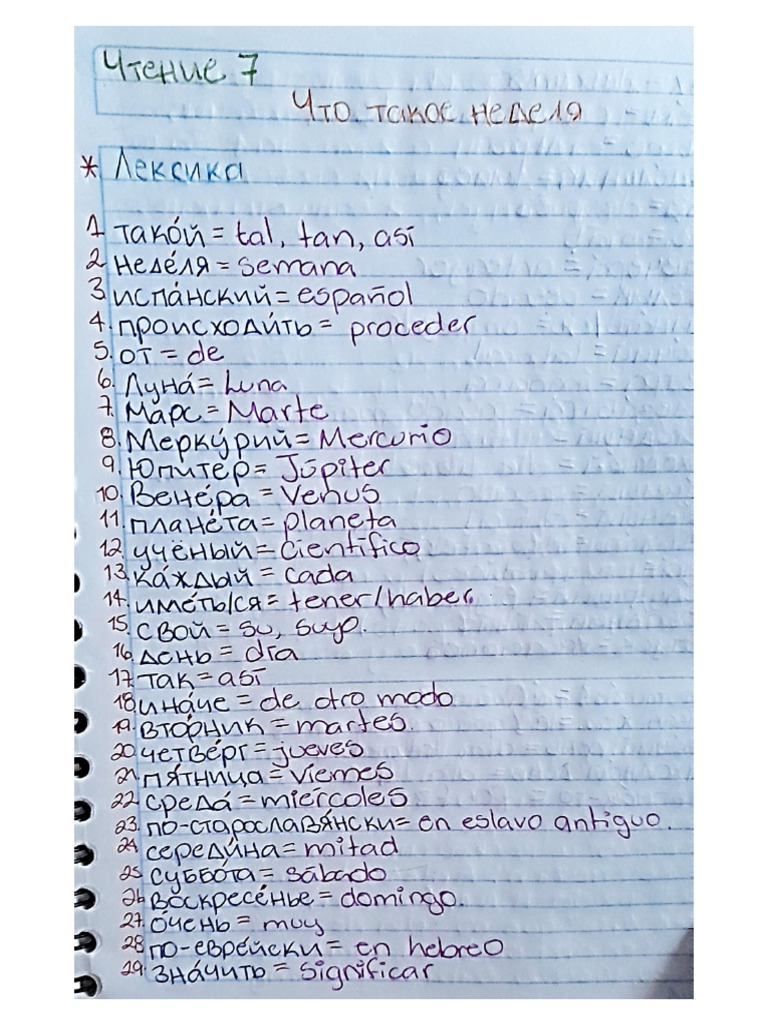 Чтение 7
Что такое неделя
* Лексика
1. такóй = tal, tan, así
2. недéля = semana
3. испáнский = español
4. происходи́ть = proceder
5. от = de
6. Лунá = Luna
7. Марс = Marte
8. Меркýрий = Mercurio
9. Юпитер = Júpiter
10. Венéра = Venus
11. планéта = planeta
12. учёный = científico
13. кáждый = cada
14. имéть/ся = tener/haber.
15. свой = su, suyo.
16. день = día
17. так = así
18. инáче = de otro modo
19. втóрник = martes.
20. четвéрг = jueves
21. пя́тница = viernes
22. средá = miércoles
23. по-старославя́нски = en eslavo antiguo.
24. середи́на = mitad
25. суббóта = sábado
26. воскресéнье = domingo.
27. óчень = muy
28. по-еврéйски = en hebreo
29. знáчить = significar